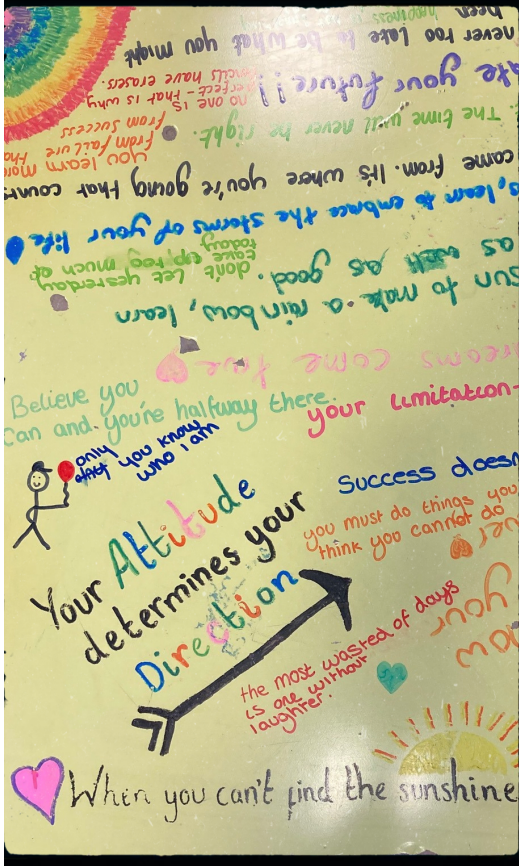 happiness
been
never too late to be what you might
ate your future!!
no one is
perfect - that is why
pencils have erasers.
The time will never be right.
you learn more
from failure tha
from success
come from. It's where you're going that count
s, learn to embrace the storms of your life
don't let yesterday
take up too much of
today
sun to make a rainbow, learn
as well as good.
reams come true
Believe you
Can and you're halfway there.
your limitation-
only
you know
who I am
Success doesn
you must do things you
think you cannot do
Your Attitude
determines your
Direction
your
now
the most wasted of days
is one without
laughter.
When you can't find the sunshine